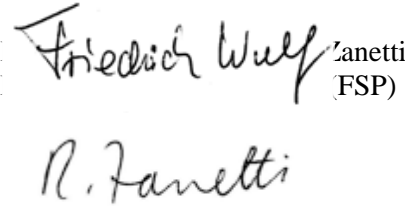 Friedrich Wulf Zanetti
(FSP)
R. Zanetti